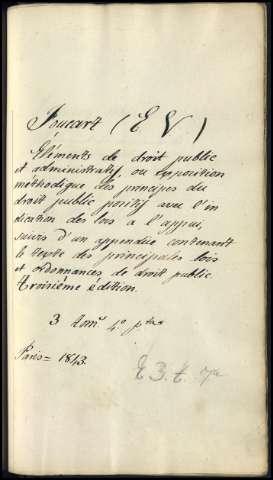 Foucart (E V)
Eléments de droit public
et administratif, ou exposition
méthodique des principes du
droit public positif avec l'in
dication des lois a l'appui,
suivis d'un appendice contenant
le texte des principales lois
et ordonnances de droit public
troisième édition.
3 Tomˢ 4º ptas
Paris = 1843.
E 3. t.